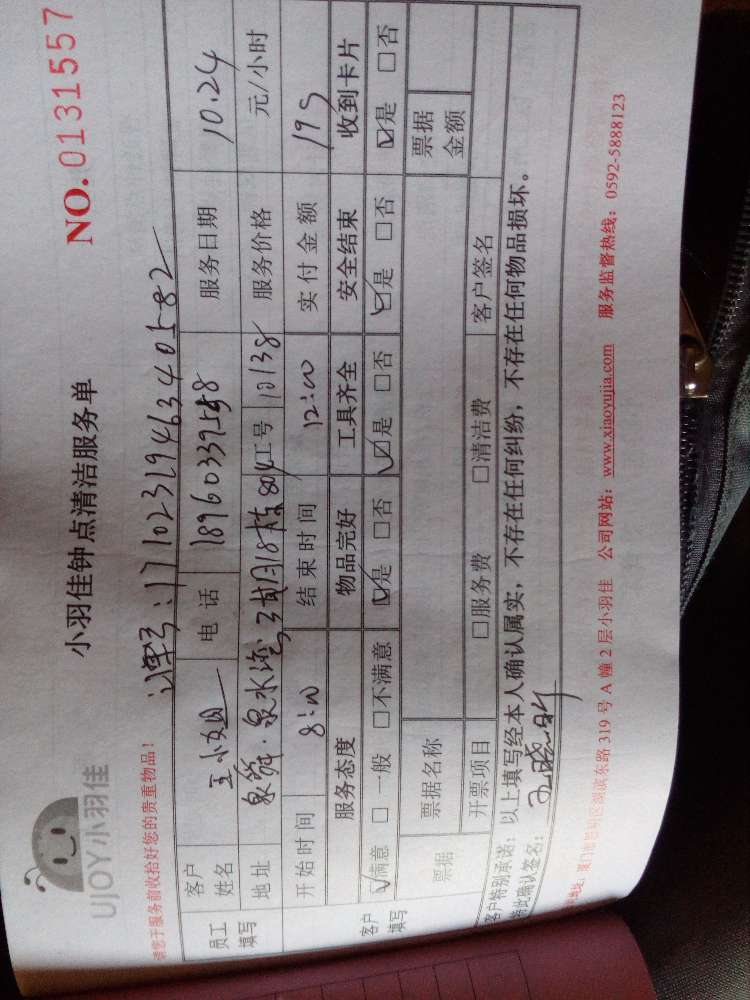 UJOY小羽佳
小羽佳钟点清洁服务单
NO.0131557
请您于服务前收拾好您的贵重物品！
订单号：1710231946340582
员工填写 客户姓名 王小姐 电话 18960337558 服务日期 10.24
地址 泉舜·泉水湾 18栋 工号 10138 服务价格 元/小时
开始时间 8:00 结束时间 12:00 实付金额 195
客户填写 服务态度 物品完好 工具齐全 安全结束 收到卡片
☑满意 □一般 □不满意 ☑是 □否 ☑是 □否 ☑是 □否 ☑是 □否
票据 票据名称 票据金额
开票项目 □服务费 □清洁费 客户签名
客户特别承诺：以上填写经本人确认属实，不存在任何纠纷，不存在任何物品损坏。
特此确认签名：王晓
地址：厦门市思明区湖滨东路 319 号 A 幢 2 层小羽佳 公司网站：www.xiaoyujia.com 服务监督热线：0592-5888123